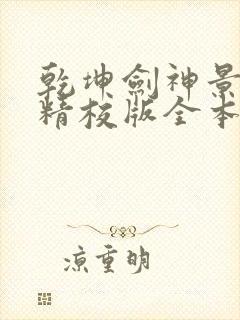 乾坤剑神景
精校版全本
凉重明